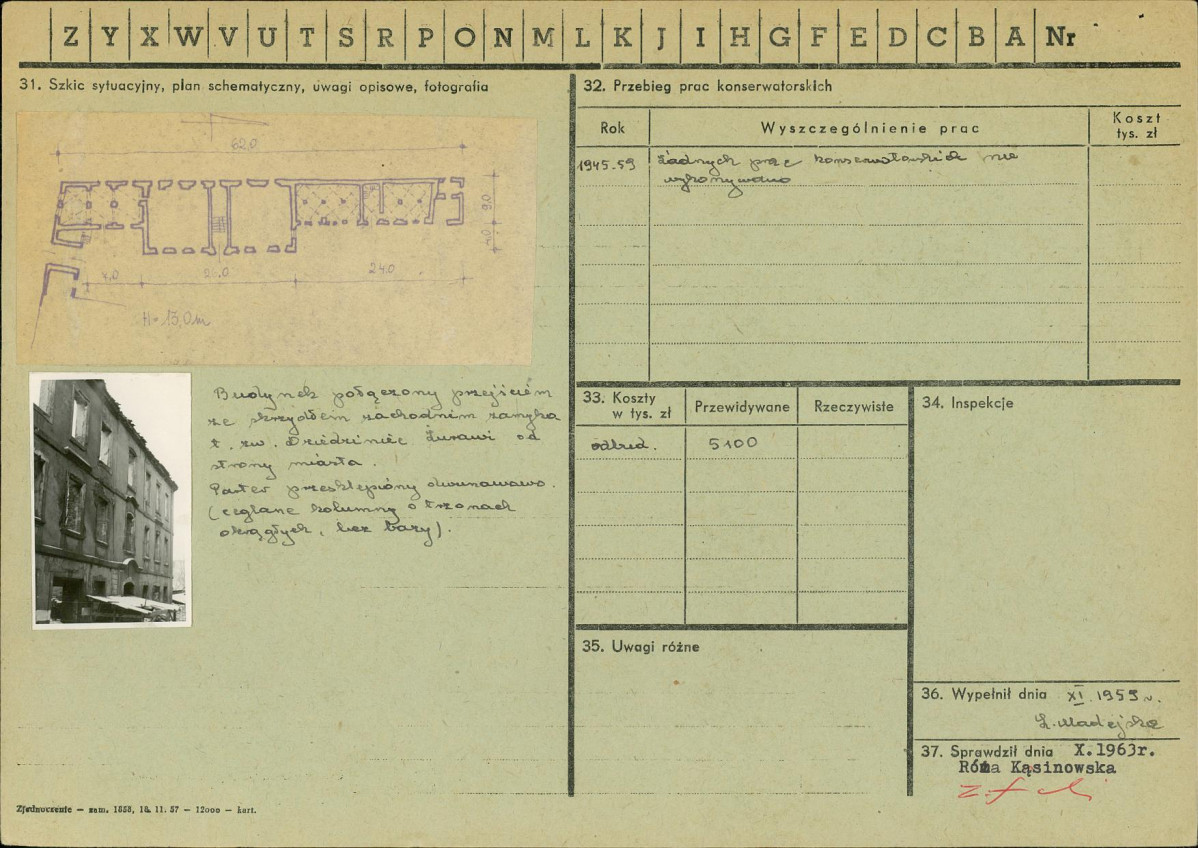 Z Y X W V U T S R P O N M L K J I H G F E D C B A Nr
31. Szkic sytuacyjny, plan schematyczny, uwagi opisowe, fotografia
62,0
9,0
24,0
H = 15,0 m
Budynek połączony przejściem
ze skrzydłem zachodnim zamyka
t. zw. Dziedziniec Żurawi od
strony miasta.
Parter przesklepiony dwunawowo.
(ceglane kolumny o trzonach
okrągłych, bez bazy).
32. Przebieg prac konserwatorskich
Rok
Wyszczególnienie prac
Koszt
tys. zł
1945-59
Żadnych prac konserwatorskich nie
wykonywano
33. Koszty
w tys. zł
Przewidywane
Rzeczywiste
odbud.
5100
34. Inspekcje
35. Uwagi różne
36. Wypełnił dnia XI. 1959 r.
Ł. Madejska
37. Sprawdził dnia X.1963r.
Róża Kąsinowska
Zjednoczenie — zam. 1555, 18. 11. 57 — 12000 — kart.